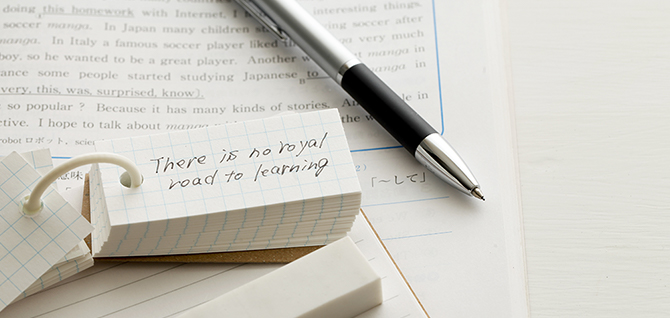 doing this homework with Internet, I interesting things.
soccer manga. In Japan many children soccer after
manga. In Italy a famous soccer player liked very much
boy, so he wanted to be a great player. Another manga in
some people started studying Japanese to in
very, this, was, surprised, know).
so popular? Because it has many kinds of stories. in
I hope to talk about manga the world.
robot ロボット,
There is no royal
road to learning
「〜して」